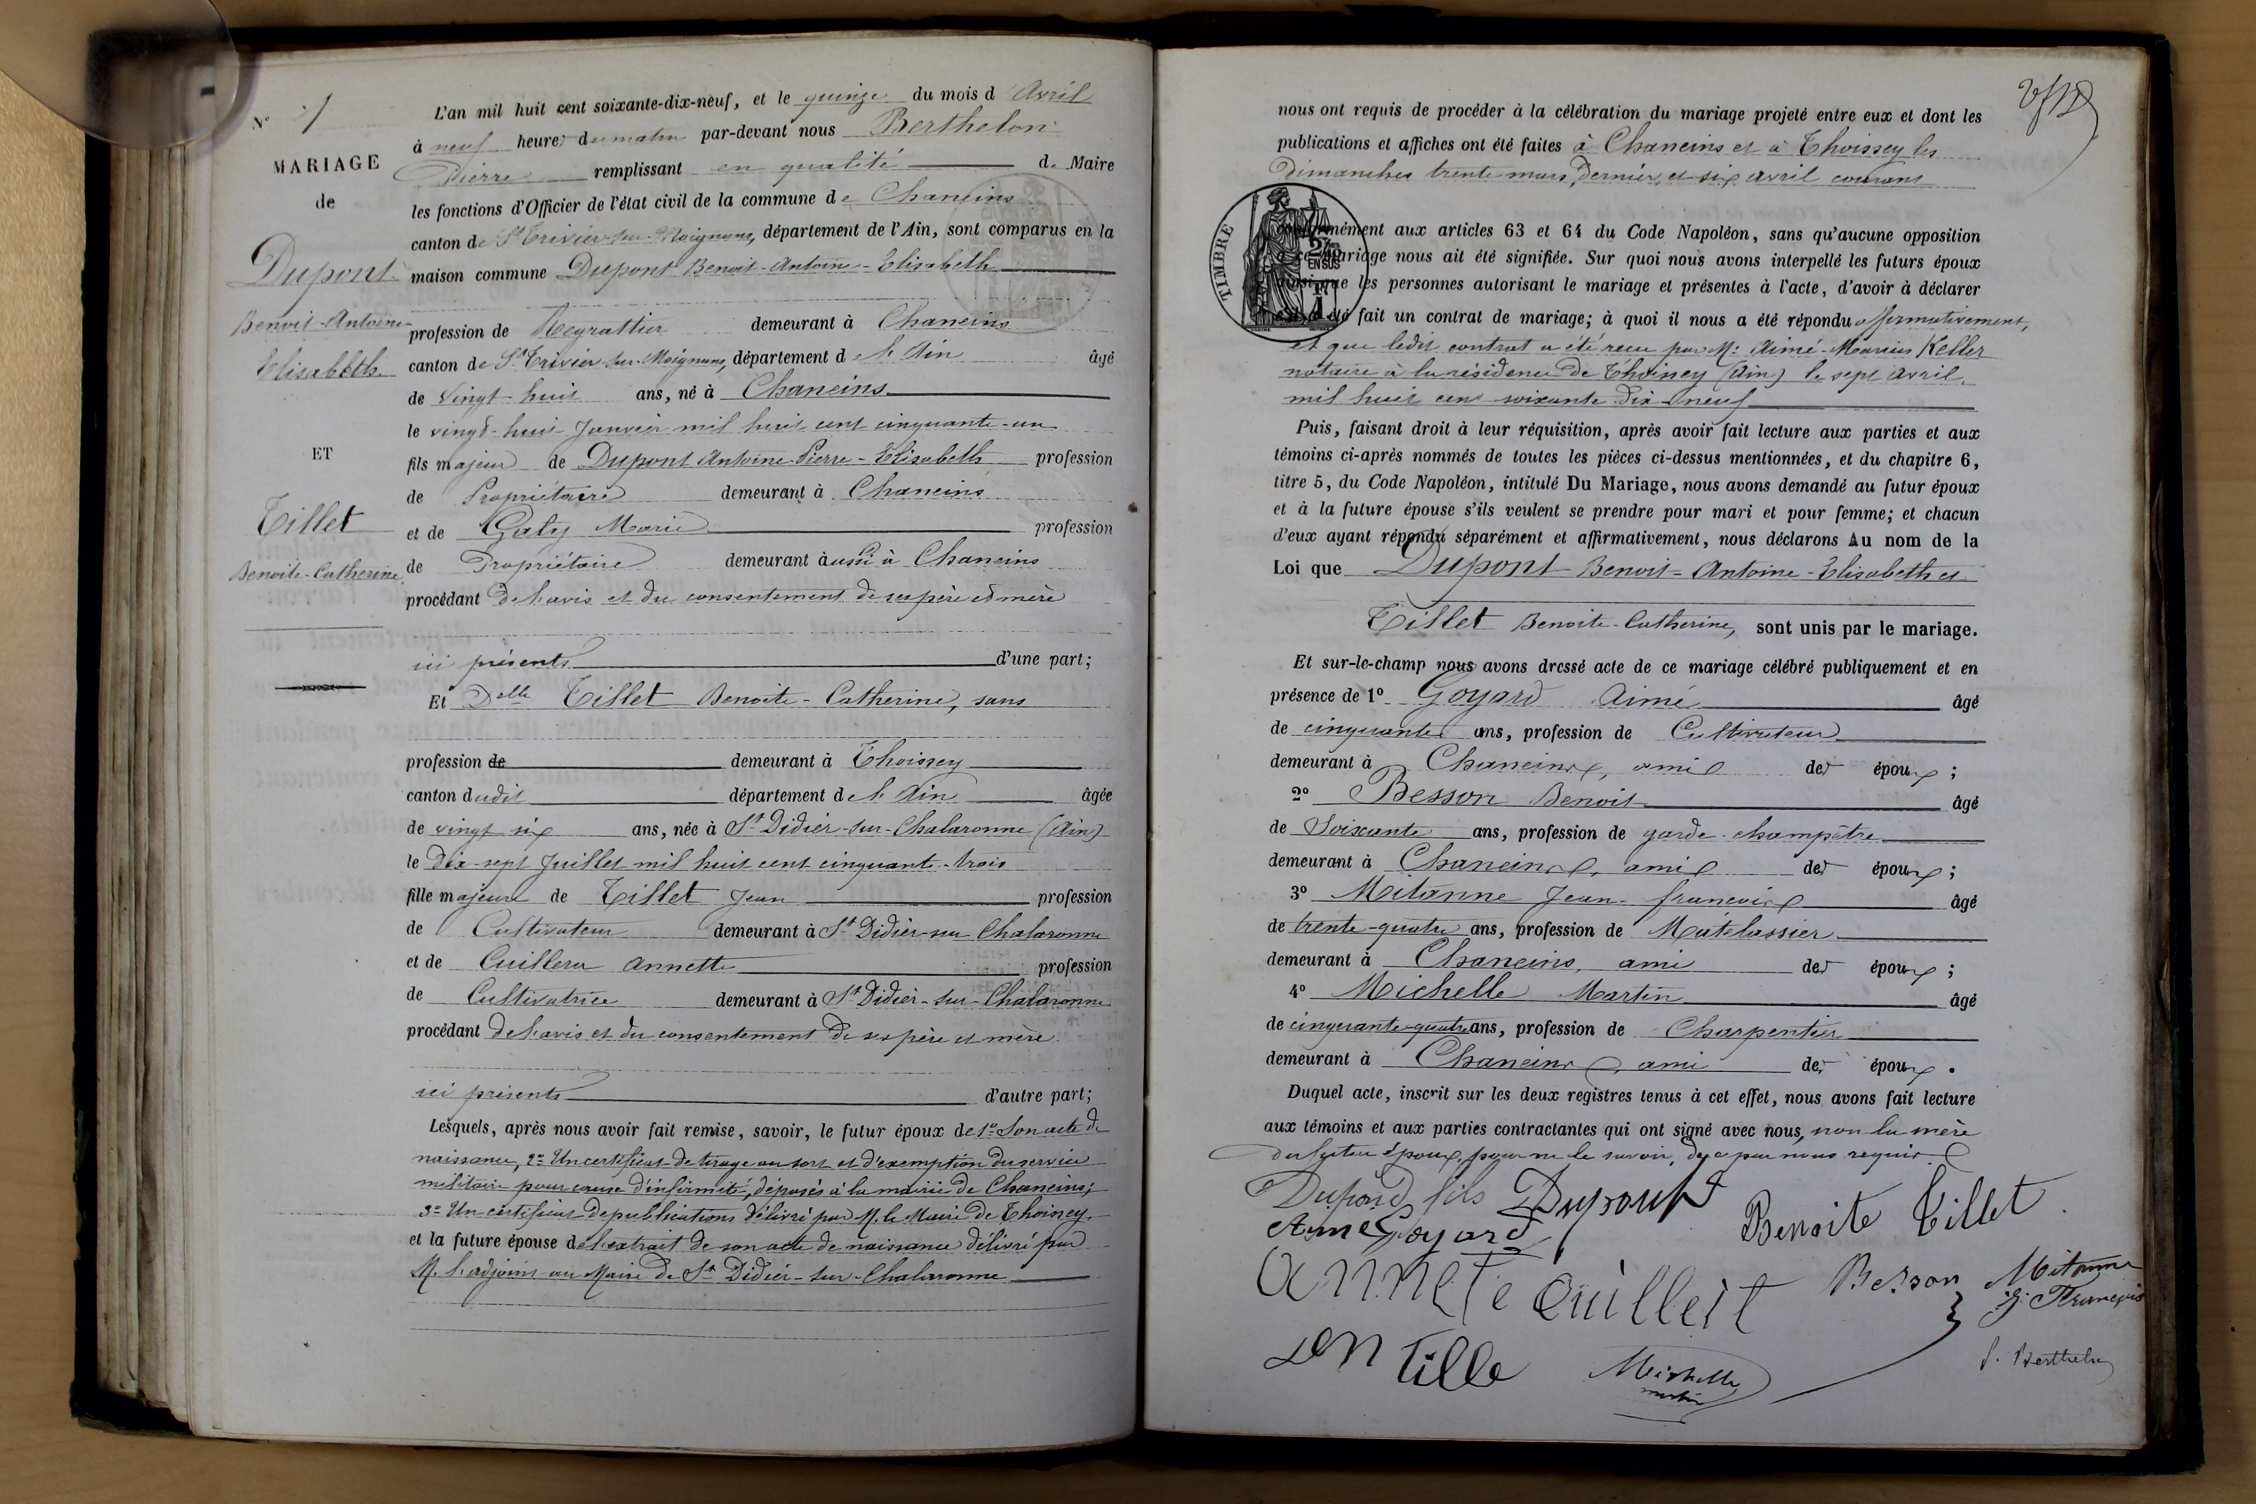 N° 7
MARIAGE
de
Dupont
Benoit-Antoine-
Elisabeth
ET
Tillet
Benoite-Catherine
L'an mil huit cent soixante-dix-neuf, et le quinze du mois d Avril
à neuf heures du matin par-devant nous Berthelon
Pierre remplissant en qualité de Maire
les fonctions d'Officier de l'état civil de la commune de Chaneins
canton de St Trivier-sur-Moignans, département de l'Ain, sont comparus en la
maison commune Dupont Benoit-Antoine-Elisabeth
profession de demeurant à Chaneins
canton de St Trivier-sur-Moignans, département de l'Ain âgé
de vingt-huit ans, né à Chaneins
le vingt-huit Janvier mil huit cent cinquante-un
fils majeur de Dupont Antoine-Pierre-Elisabeth profession
de Propriétaire demeurant à Chaneins
et de Galy Marie profession
de Propriétaire demeurant à aussi à Chaneins
procédant de l'avis et du consentement de ses père et mère
ici présents d'une part;
Et Delle Tillet Benoite-Catherine, sans
profession de demeurant à Thoissey
canton dudit département de l'Ain âgée
de vingt six ans, née à St Didier-sur-Chalaronne (Ain)
le dix-sept Juillet mil huit cent cinquante-trois
fille majeure de Tillet Jean profession
de Cultivateur demeurant à St Didier-sur-Chalaronne
et de Cuilleru Annette profession
de Cultivatrice demeurant à St Didier-sur-Chalaronne
procédant de l'avis et du consentement de ses père et mère
ici présents d'autre part;
Lesquels, après nous avoir fait remise, savoir, le futur époux de 1° Son acte de
naissance, 2° Un certificat de tirage au sort et d'exemption du service
militaire pour cause d'infirmité, déposés à la mairie de Chaneins;
3° Un certificat de publications délivré par M. le Maire de Thoissey
et la future épouse de l'extrait de son acte de naissance délivré par
M. l'adjoint au Maire de St Didier-sur-Chalaronne
nous ont requis de procéder à la célébration du mariage projeté entre eux et dont les
publications et affiches ont été faites à Chaneins et à Thoissey les
dimanches trente mars dernier et six avril courant
TIMBRE
2/10 EN SUS
conformément aux articles 63 et 64 du Code Napoléon, sans qu'aucune opposition
à ce mariage nous ait été signifiée. Sur quoi nous avons interpellé les futurs époux
ainsi que les personnes autorisant le mariage et présentes à l'acte, d'avoir à déclarer
s'il a été fait un contrat de mariage; à quoi il nous a été répondu affirmativement,
et que ledit contrat a été reçu par Me Aimé-Marius Keller
notaire à la résidence de Thoissey (Ain) le sept avril
mil huit cent soixante dix-neuf
Puis, faisant droit à leur réquisition, après avoir fait lecture aux parties et aux
témoins ci-après nommés de toutes les pièces ci-dessus mentionnées, et du chapitre 6,
titre 5, du Code Napoléon, intitulé Du Mariage, nous avons demandé au futur époux
et à la future épouse s'ils veulent se prendre pour mari et pour femme; et chacun
d'eux ayant répondu séparément et affirmativement, nous déclarons Au nom de la
Loi que Dupont Benoit-Antoine-Elisabeth et
Tillet Benoite-Catherine, sont unis par le mariage.
Et sur-le-champ nous avons dressé acte de ce mariage célébré publiquement et en
présence de 1° Goyard Aimé âgé
de cinquante ans, profession de Cultivateur
demeurant à Chaneins, ami des époux;
2° Besson Benoit âgé
de Soixante ans, profession de garde-champêtre
demeurant à Chaneins, ami des époux;
3° Mitanne Jean-françois âgé
de trente-quatre ans, profession de Matelassier
demeurant à Chaneins, ami des époux;
4° Michelle Martin âgé
de cinquante-quatre ans, profession de Charpentier
demeurant à Chaneins, ami des époux.
Duquel acte, inscrit sur les deux registres tenus à cet effet, nous avons fait lecture
aux témoins et aux parties contractantes qui ont signé avec nous, non la mère
du futur époux, pour ne le savoir, de ce par nous requis
Dupond fils Dupont Benoite Tillet
Aimé Goyard
annete Cuilleit Besson Mitanne
J. François
Jen Tille Michelle
martin
P. Berthelon